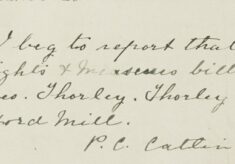 I beg to report that
ights & bill
eo. Thorley. Thorley
ord Mill.
P. C. Catlin